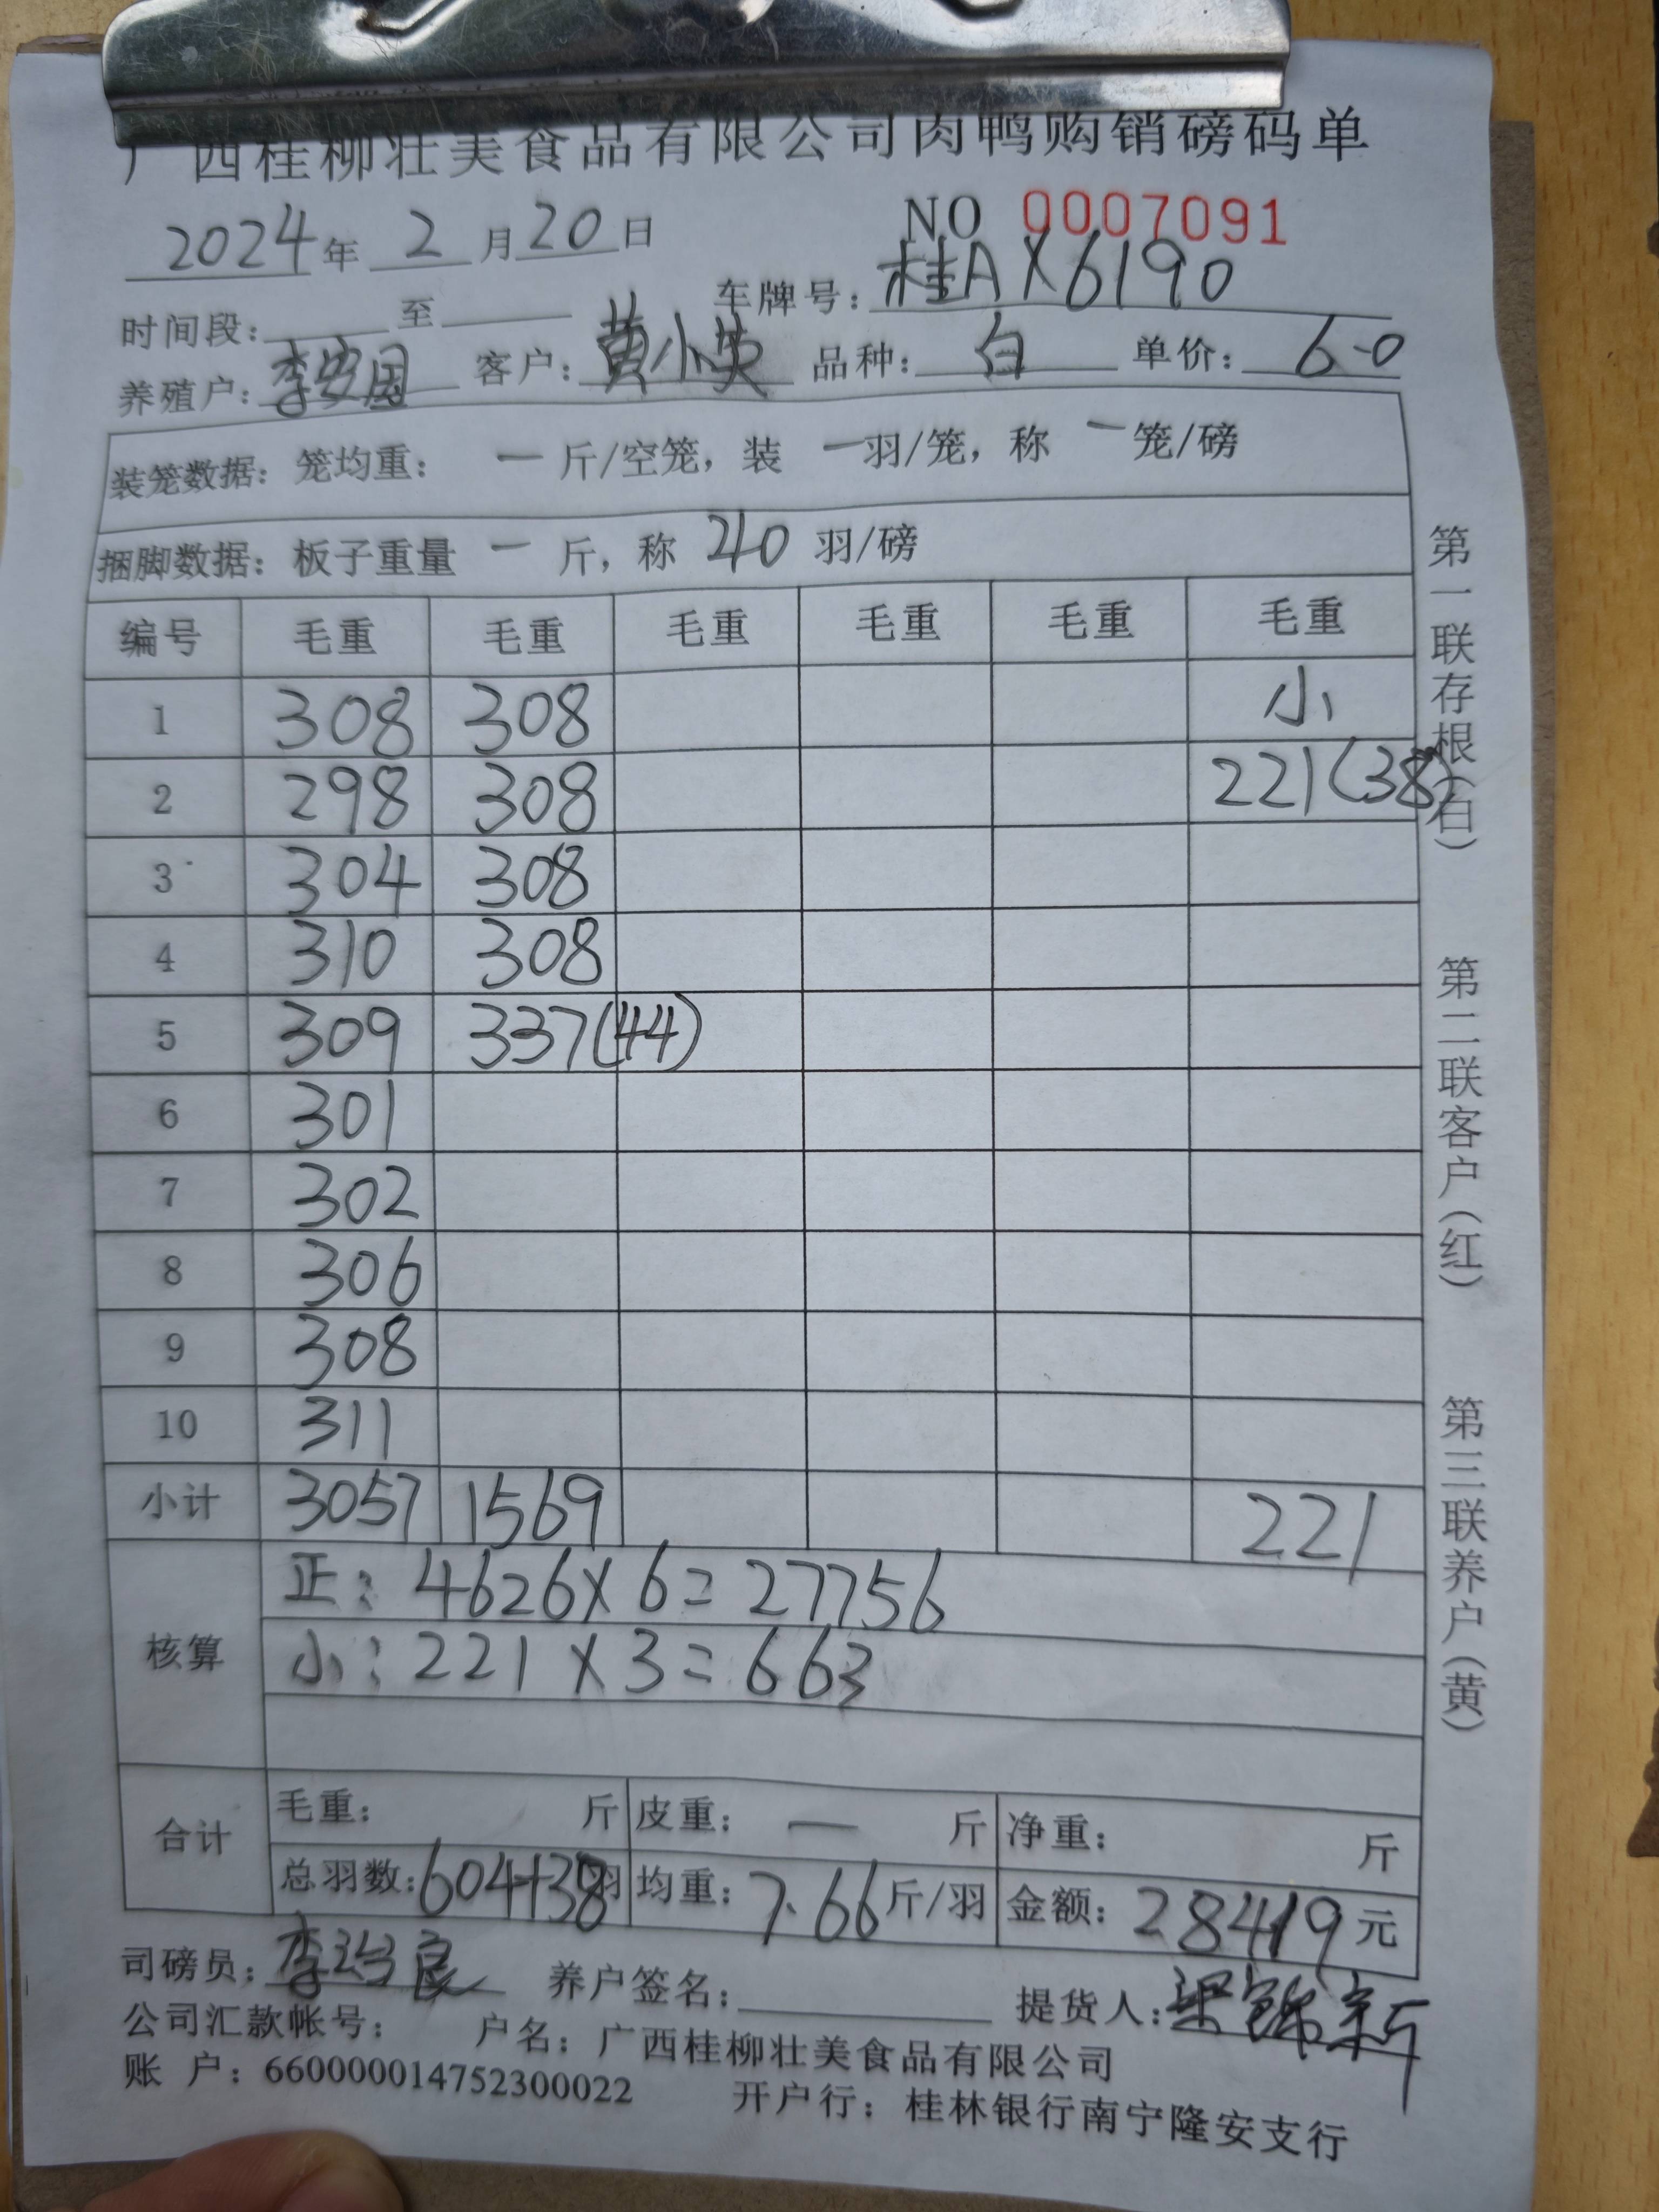 广西桂柳壮美食品有限公司肉鸭购销磅码单
2024年 2月20日 NO 0007091
时间段: 至 车牌号: 桂AX6190
养殖户: 李安国 客户: 黄小英 品种: 白 单价: 6.0
装笼数据: 笼均重: 一 斤/空笼, 装 一羽/笼, 称 一笼/磅
捆脚数据: 板子重量 一 斤, 称 40 羽/磅
编号 毛重 毛重 毛重 毛重 毛重 毛重
1 308 308 小
2 298 308 221(38)
3 304 308
4 310 308
5 309 337(44)
6 301
7 302
8 306
9 308
10 311
小计 3057 1569 221
核算 正: 4626×6=27756
小: 221×3=663
合计 毛重: 斤 皮重: 一 斤 净重: 斤
总羽数: 604+38羽 均重: 7.66斤/羽 金额: 28419元
司磅员: 李治良 养户签名: 提货人: 梁锦新
公司汇款帐号: 户名: 广西桂柳壮美食品有限公司
账 户: 660000014752300022 开户行: 桂林银行南宁隆安支行
第一联存根(白)
第二联客户(红)
第三联养户(黄)